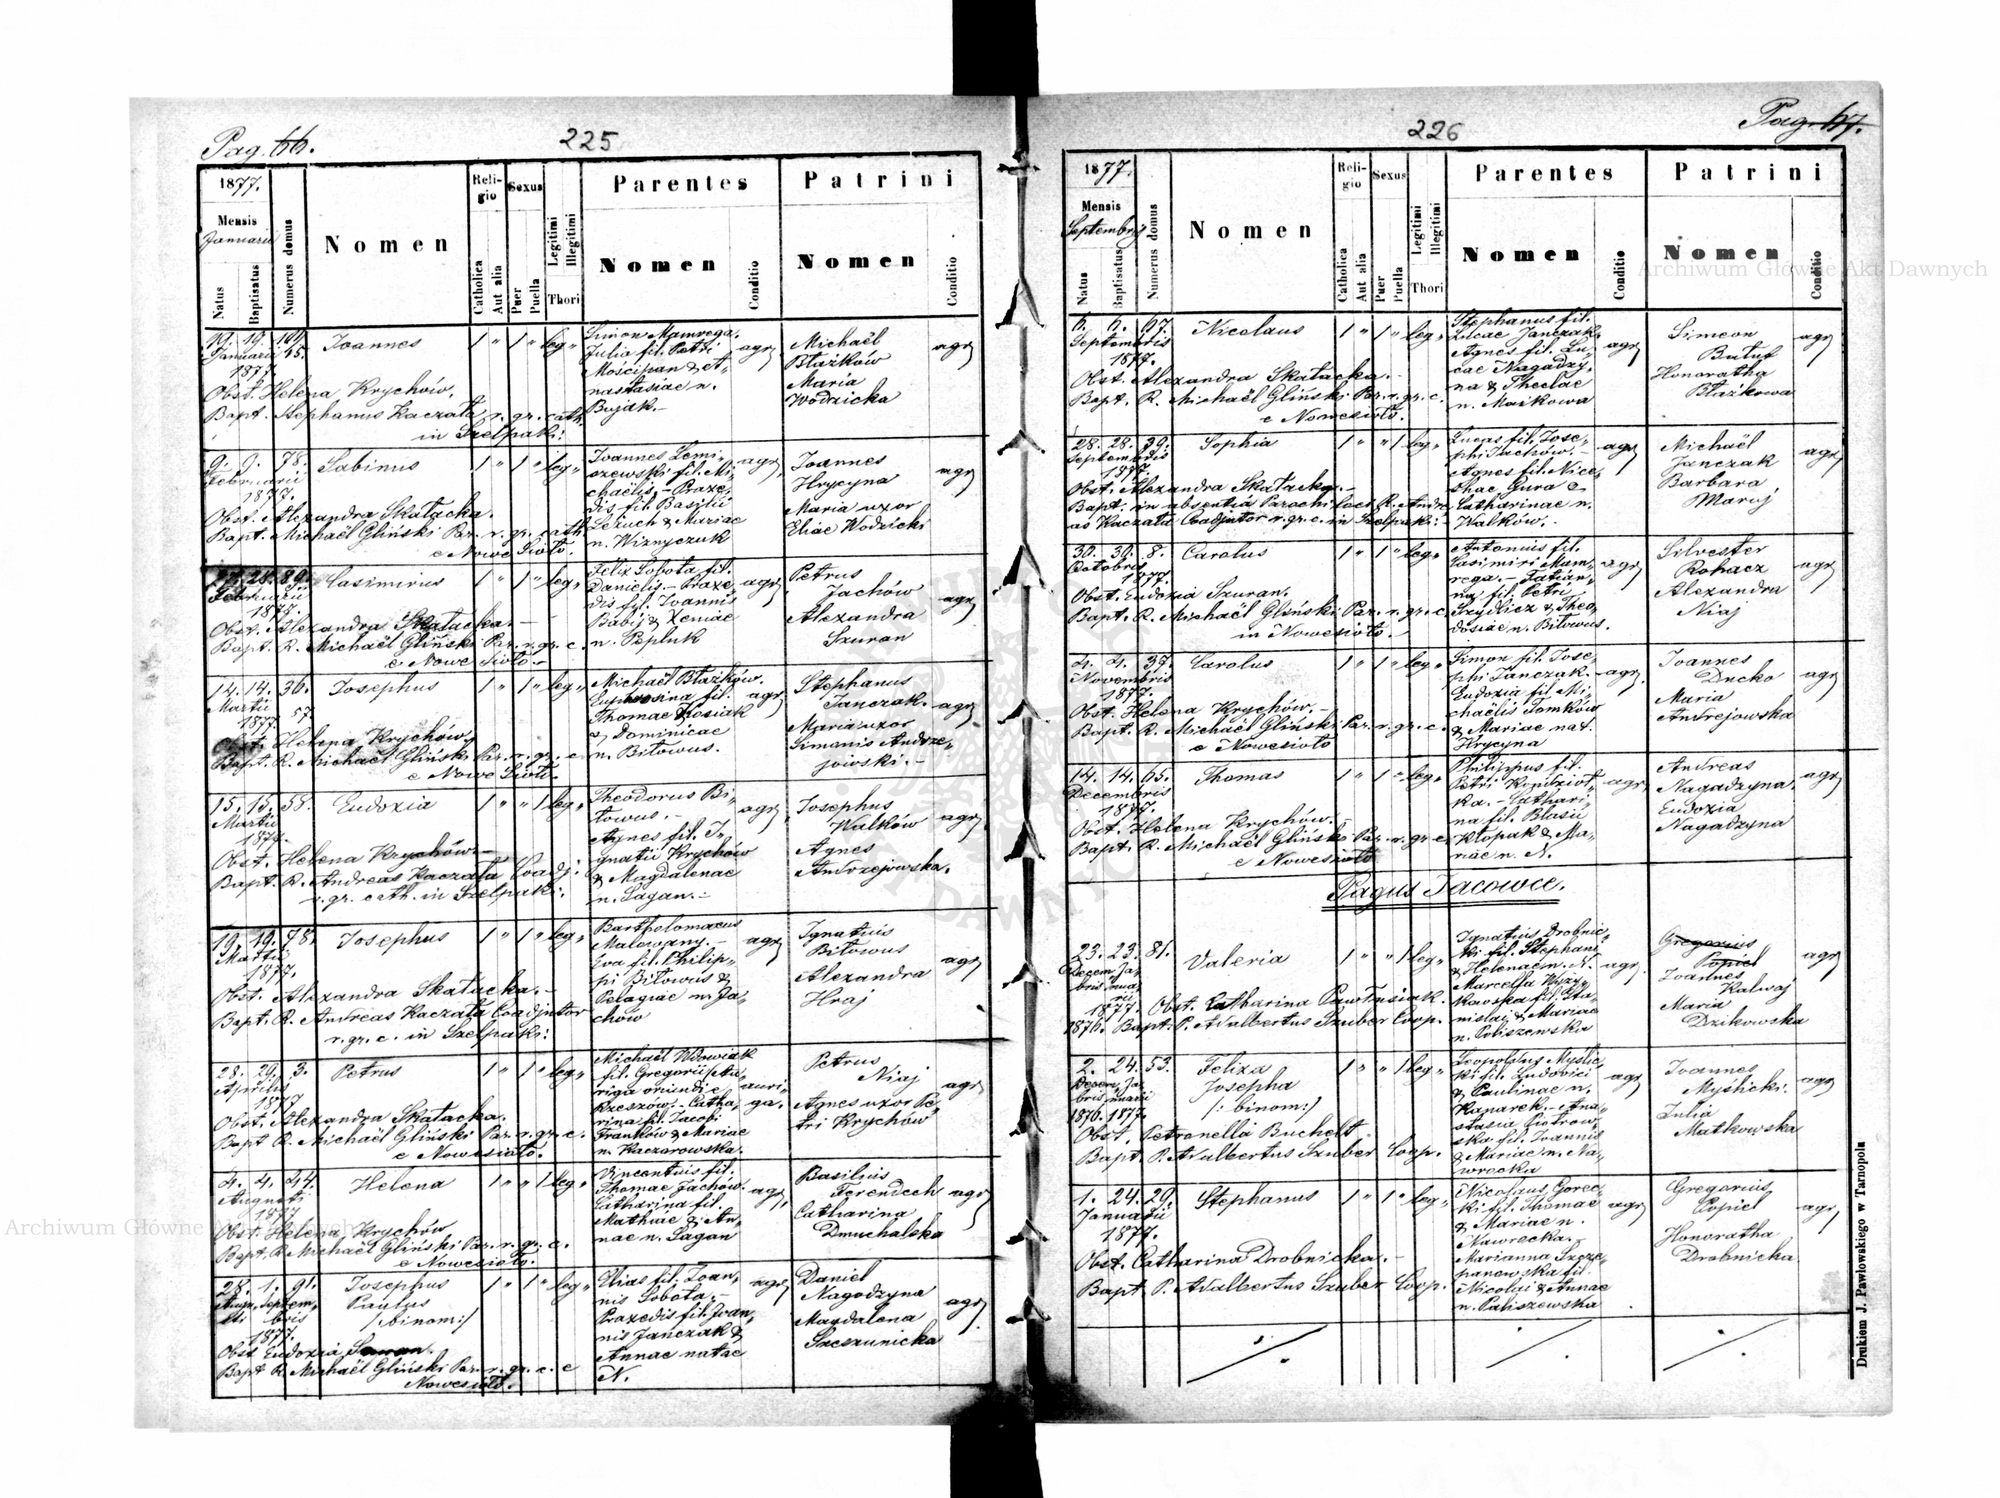 Pag. 66.
225
1877.
Mensis
Januarii
Natus
Baptisatus
Numerus domus
Nomen
Religio
Catholica
Aut alia
Sexus
Puer
Puella
Legitimi
Illegitimi
Thori
Parentes
Nomen
Conditio
Patrini
Nomen
Conditio
19. 19.
Januarii 45.
1877.
Joannes
1 " 1 " leg.
Simon Mamrega.
Julia fil. Petri
Mościpan & A-
nastasiae n.
Bujak.-
agr.
Michaël
Błażków
Maria
Wodzicka
agr.
Obst. Helena Krychów.
Bapt. Stephanus Kaczała r. gr. cath.
in Szelpaki.
9. 9. 78.
Februarii
1877.
Sabinus
1 " 1 " leg.
Joannes Lemi-
szewski fil. Mi-
chaëlis.- Praxe-
dis fil. Basilii
Lezuch & Mariae
n. Wiznyczuk
agr.
Joannes
Hrycyna
Maria uxor
Eliae Wodzicki
agr.
Obst. Alexandra Skałacka.
Bapt. Michaël Gliński Par. r. gr. cath.
e Nowe Sioło.
28. 89.
Februarii
1877.
Casimirus
1 " 1 " leg.
Felix Sobota fil.
Danielis.- Praxe-
dis fil. Joannis
Babij & Xeniae
n. Pepluk
agr.
Petrus
Jachów
Alexandra
Szuran
agr.
Obst. Alexandra Skałacka.
Bapt. R. Michaël Gliński Par. r. gr. c.
e Nowe Sioło.-
14. 14. 36.
Martii
1877. 57.
Josephus
1 " 1 " leg.
Michaël Błażków.
Euphrosina fil.
Thomae Kosiak
& Dominicae
n. Biłowus.
agr.
Stephanus
Janczak.
Maria uxor
Simonis Andrze-
jowski.-
agr.
Obst. Helena Krychów.
Bapt. R. Michaël Gliński Par. r. gr. c.
e Nowe Sioło.
15. 15. 58.
Martii
1877.
Eudoxia
1 " " 1 leg.
Theodorus Bi-
łowus.-
Agnes fil. I-
gnatii Krychów
& Magdalenae
n. Sagan.-
agr.
Josephus
Walków
Agnes
Andrzejowska.
agr.
Obst. Helena Krychów.-
Bapt. R. Andreas Kaczała Coadj.
r. gr. cath. in Szelpaki.
19. 19. 78.
Martii
1877.
Josephus
1 " 1 " leg.
Bartholomaeus
Malowany.-
Eva fil. Philip-
pi Biłowus &
Pelagiae n. Ja-
chów
agr.
Ignatius
Biłowus
Alexandra
Hraj
agr.
Obst. Alexandra Skałacka.-
Bapt. R. Andreas Kaczała Coadjutor
r. gr. c. in Szelpaki.
28. 29. 3.
Aprilis
1877
Petrus
1 " 1 " leg.
Michaël Wdowiak
fil. Gregorii Au-
riga oriundi e
Rzeszów.- Catha-
rina fil. Jacobi
Franków & Mariae
n. Kaczorowska.
auri-
ga.
Petrus
Niaj
Agnes uxor Pe-
tri Krychów
agr.
Obst. Alexandra Skałacka.
Bapt. R. Michaël Gliński Par. r. gr. c.
e Nowesioło.
4. 4. 44.
Augusti
1877
Helena
1 " " 1 leg.
Vincentius fil.
Thomae Jachów.
Catharina fil.
Mathiae & An-
nae n. Sagan
agr.
Basilius
Ferendech
Catharina
Dmuchalska
agr.
Obst. Helena Krychów
Bapt. R. Michaël Gliński Par. r. gr. c.
e Nowesioło.
28. 1. 91.
Augu- Septem-
sti bris
1877.
Josephus
Paulus
/:binom:/
1 " 1 " leg.
Elias fil. Joan-
nis Sobota.-
Praxedis fil. Joan-
nis Janczak &
Annae natae
N.
agr.
Daniel
Nagodzyna
Magdalena
Szeszunicka
agr.
Obst. Eudoxia
Bapt. R. Michaël Gliński Par. r. gr. c. e
Nowesioło.
226
Pag. 67.
1877.
Mensis
Septembris
Natus
Baptisatus
Numerus domus
Nomen
Religio
Catholica
Aut alia
Sexus
Puer
Puella
Legitimi
Illegitimi
Thori
Parentes
Nomen
Conditio
Patrini
Nomen
Conditio
6. 6. 67.
Septembris
1877.
Nicolaus
1 " 1 " leg.
Stephanus fil.
Lucae Janczak.
Agnes fil. Lu-
cae Nagadzy-
na & Theclae
n. Maikowa
agr.
Simeon
Butuf
Honoratha
Błażkowa
agr.
Obst. Alexandra Skałacka.-
Bapt. R. Michaël Gliński Par. r. gr. c.
e Nowesioło.
28. 28. 39.
Septembris
1877.
Sophia
1 " " 1 leg.
Lucas fil. Jose-
phi Jachów.-
Agnes fil. Nice-
thae Gura &
Catharinae n.
Walków.-
agr.
Michaël
Janczak
Barbara
Maruj
agr.
Obst. Alexandra Skałacka.-
Bapt. in absentia Parochi loci R. Andre-
as Kaczała Coadjutor r. gr. c. in Szelpaki.-
30. 30. 8.
Octobris
1877.
Carolus
1 " 1 " leg.
Antonius fil.
Casimiri Mam-
rega.- Tatian-
na fil. Petri
Szydlicz & Theo-
dosiae n. Biłowus.
agr.
Silvester
Rohacz
Alexandra
Niaj
agr.
Obst. Eudoxia Szuran.
Bapt. R. Michaël Gliński Par. r. gr. c.
in Nowesioło.-
4. 4. 37.
Novembris
1877.
Carolus
1 " 1 " leg.
Simon fil. Jose-
phi Janczak.-
Eudoxia fil. Mi-
chaëlis Tomków
& Mariae nat.
Hrycyna
agr.
Joannes
Ducko
Maria
Andrejowska
agr.
Obst. Helena Krychów.-
Bapt. R. Michaël Gliński Par. r. gr. c.
e Nowesioło
14. 14. 65.
Decembris
1877.
Thomas
1 " 1 " leg.
Philippus fil.
Petri Kondzioł-
ka.- Cathari-
na fil. Blasii
Kłopak & Ma-
riae n. N.
agr.
Andreas
Nagadzyna.
Eudoxia
Nagadzyna
agr.
Obst. Helena Krychów.-
Bapt. R. Michaël Gliński Par. r. gr. c.
e Nowesioło
Pagus Jacowce.
23. 23. 81.
Decem- Ja-
bris nua-
rii
1877.
1876.
Valeria
1 " " 1 leg.
Ignatius Drobnic-
ki fil. Stephani
& Helenae n. N.
Marcella Wyży-
kowska fil. Sta-
nislai & Mariae
n. Poliszewska
agr.
Gregorius
Popiel
Joannes
Kalwoj
Maria
Dzikowska
agr.
Obst. Catharina Pawłusiak.
Bapt. P. Adalbertus Szuber Coop.
2. 24. 53.
Decem- Ja-
bris nuarii
1876. 1877.
Felixa
Josepha
/: binom:/
1 " " 1 leg.
Leopoldus Myślic-
ki fil. Ludovici
& Paulinae n.
Kaparek.- Ana-
stasia Piotrow-
ska fil. Joannis
& Mariae n. Na-
wrocka
agr.
Joannes
Myślicki.
Julia
Matkowska
agr.
Obst. Petronella Buchelt.
Bapt. P. Adalbertus Szuber Coop.
1. 24. 29.
Januarii
1877.
Stephanus
1 " 1 " leg.
Nicolaus Gorec-
ki fil. Thomae
& Mariae n.
Nawrocka.-
Marianna Szcze-
panowska fil.
Nicolai & Annae
n. Paliszewska
agr.
Gregorius
Popiel
Honoratha
Drobnicka
agr.
Obst. Catharina Drobnicka.-
Bapt. P. Adalbertus Szuber Coop.
Drukiem J. Pawłowskiego w Tarnopolu
Archiwum Główne Akt Dawnych
Archiwum Główne Akt Dawnych